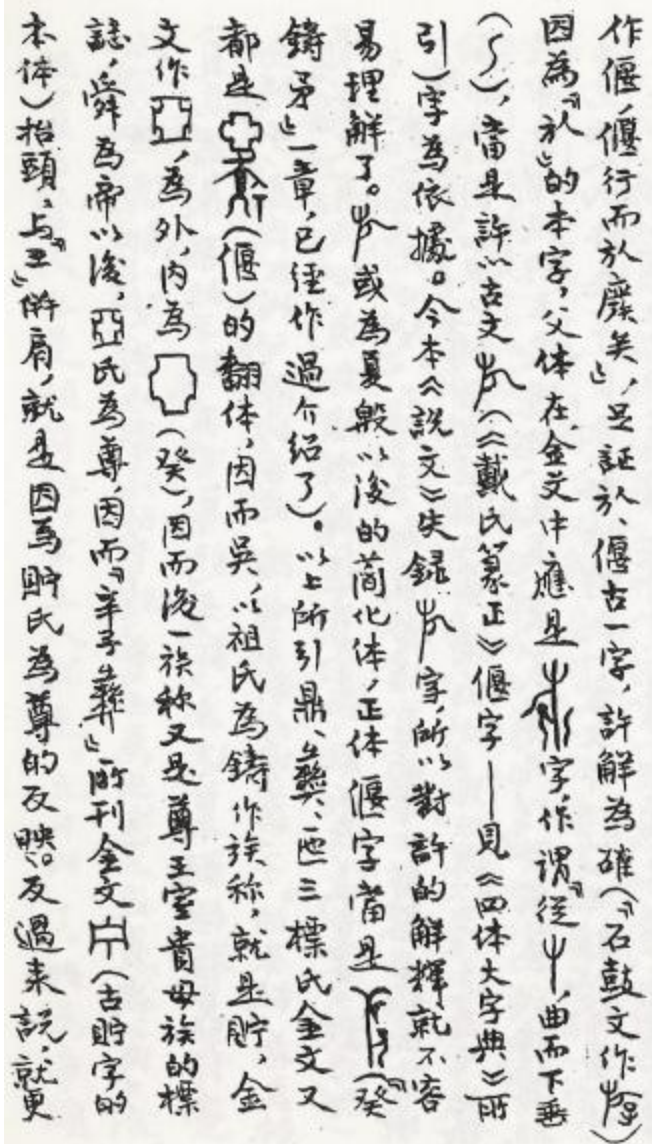 作偃，偃行而㫃廢矣』，足証㫃、偃古一字，許解為確（『石鼓文作
因為『㫃』的本字，父体在金文中應是 字，作謂『從屮，曲而下垂
（ ），當是許以古文 （《戴氏篆正》偃字——見《四体大字典》所
引）字為依據。今本《說文》失錄 字，所以對許的解釋就不容
易理解了。 或為夏殷以後的簡化体，正体偃字當是 （『癸
鑄矛』一章，已經作過介紹了）。以上所引鼎、彝、匜三標氏金文又
都是 （偃）的翻体，因而吳，以祖氏為鑄作族称，就是貯，金
文作 ，為外，内為 （癸），因而後一族称又是尊王室貴母族的標
誌，舜為帝以後， 氏為尊，因而『辛子彝』所刊金文 （古貯字的
本体）抬頭，与『王』併肩，就是因為貯氏為尊的反映。反過来説，就更